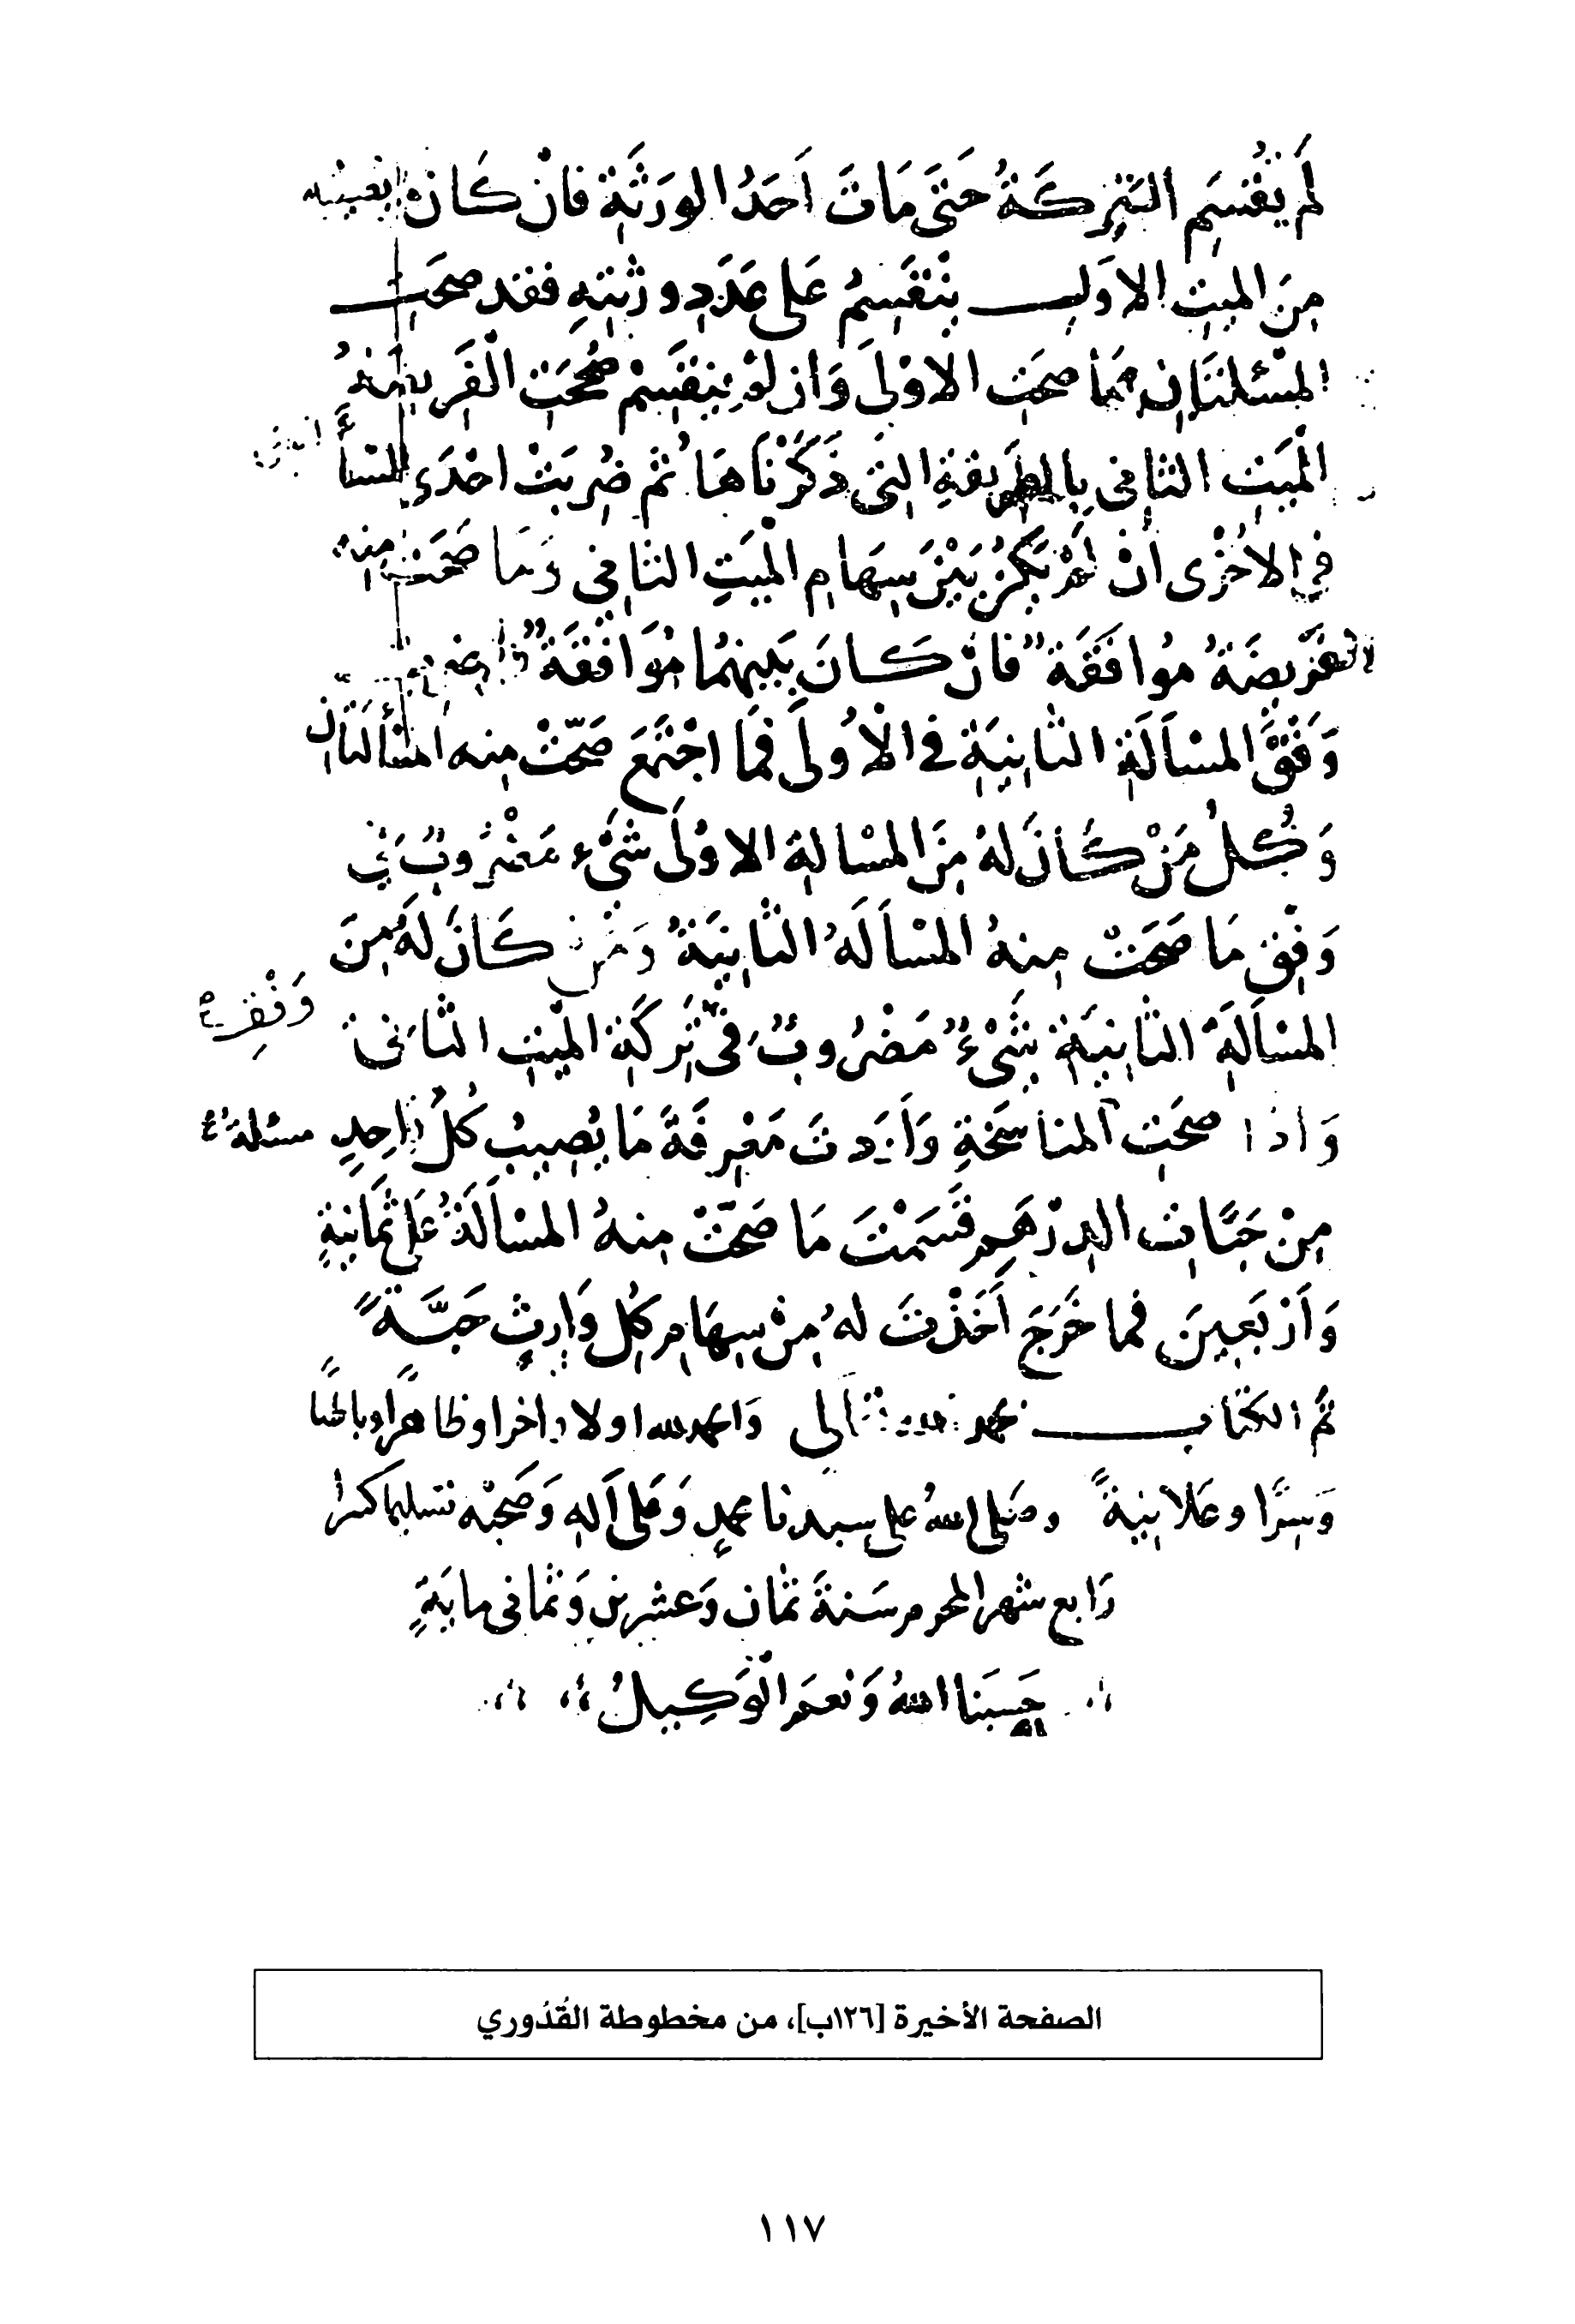 لَمْ يَقْسِمِ التَّرِكَةُ حَتَى مَاتَ اَحَدُ الورَثَةِ فانْ كَانَ نصيبه
مِنَ الميتِ الاوَلِ يَنْقَسِمُ عَلى عَدَدِ ورثتِهِ فقد صحَتِ
المسْئلتَانِ مِمَا صحَتِ الاوْلىَ وَان لمْ ينقَسِمْ صُححَتِ الْفَريضةُ
الْمَيتِ الثانى بِالطَريقةِ التى ذَكَرْنَاهَا ثم ضُربَتْ احْدَى المسأ
في الاُخْرى انْ لَمْ يَكُنْ بَيْنَ سِهَامِ الْميَتِ الثانِي وَمَا صَحَتْ منه
الفَرِيضَةُ مُوافَقَةٌ فانْ كَانَ بَينهُمَا مُوَافَقَةٌ
وَفْقَ المسْاَلَةِ الثانِيَةِ فى الْاُولىَ فمَا اجْتَمَعَ صَحّتْ منه المسْألتَانِ
وَكُلُ مَنْ كَانَ لهُ مِنَ المسْالةِ الاوْلَى شَىْء مَضْروبٌ في
وَفْقِ مَا صَحَتْ مِنهُ المسْاَلَهُ الثانِيَةُ وَمَنْ كَانَ لَهُ مِنَ
المسْاَلَةِ الثانِيَةِ شَىْءٌ مَضْرُوبٌ فى تَرِكَةِ الميتِ الثانى
وَفْقِ
وَاذا صحَتِ المناسَخةِ وَاَرَدتَ مَعْرِفَةَ مَا يُصِيبُ كُلُ وَاحِدٍ
مسئلة
مِنْ حَبَّاتِ الدِرْهَمِ قَسَمْتَ مَا صَحّتْ مِنهُ المسْاَلَةُ عَلى ثَمَانيةٍ
وَاَرْبَعِينَ فما خَرَجَ اَخَذْتَ لهُ مِنْ سِهَامِ كلِ وَارِثٍ حَبَّةً
تم الكتاب بحمد الله تعالى وَالحمد لله اولا واخرا وظاهرًا وباطنًا
وَسِرًّا وعَلانِيَةً وصَلى اللهُ على سيدنا محمدٍ وَعَلى آلهِ وَصَحْبه تسليما كثيرا
رَابع شهر المحرم سَنةَ ثمان وَعشرين وَثمانى مايَةٍ
حَسْبَنا اللهُ وَنعمَ الْوَكِيلُ
الصفحة الأخيرة [١٢٦ب]، من مخطوطة القُدُوري
١١٧